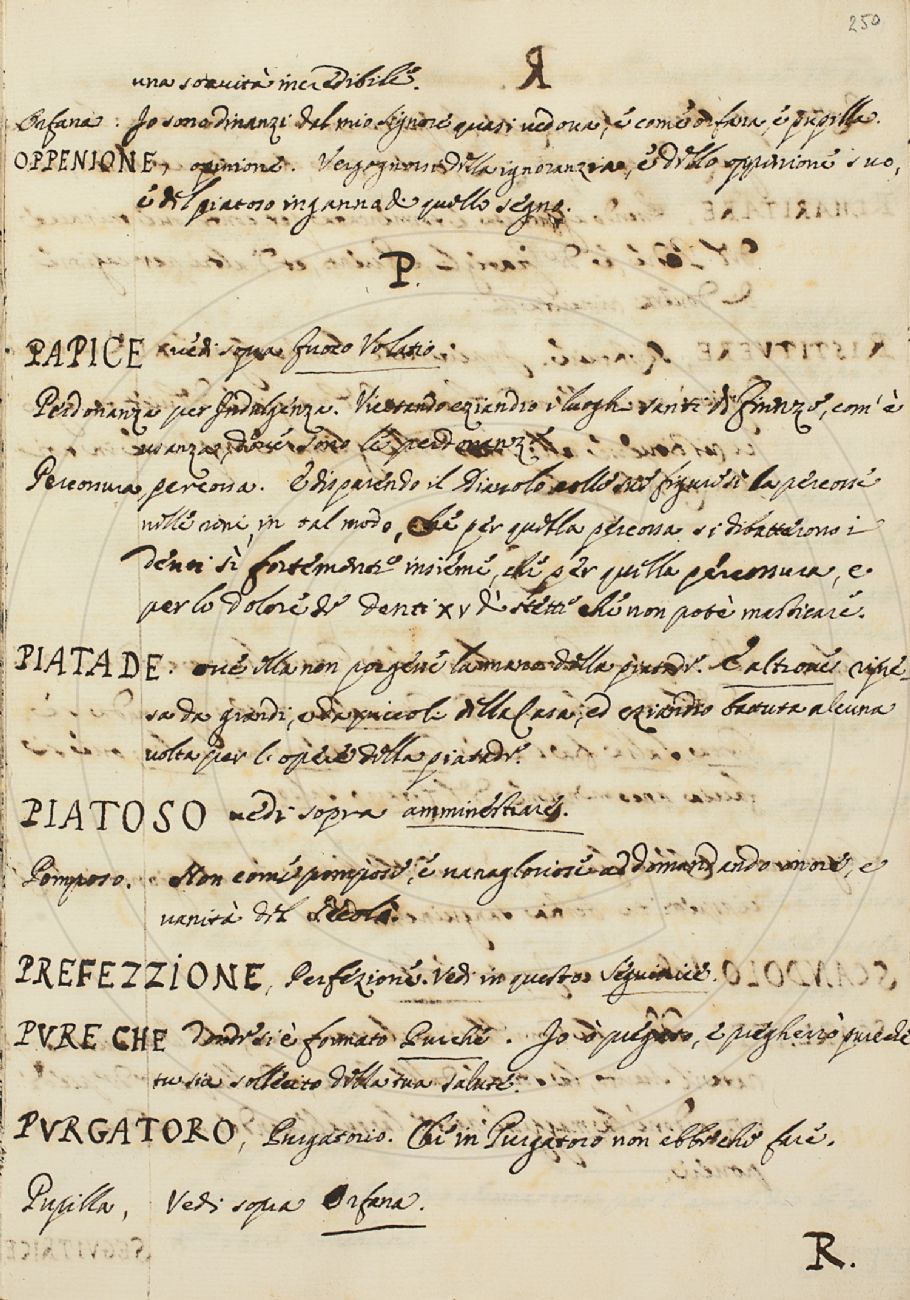 250
una soavità incredibile.
Orfana. Io sono dinanzi dal mio Signore quasi vedova, e come orfana, e pupilla.
OPPENIONE, opinione. Vergognossi della ignoranzia, e dello oppinione suo,
e del piatoso inganna de quello segno.
P.
PAPICE vedi sopra fuoco Volatio
Perdonanza per Indulgenza. Vicitando eziandio i luoghi santi di Firenze, com'è
usanza, dove sono le perdonanze.
Percossura, percossa. E disparendo il Diavolo colle sue figure si la percosse
nelle reni, in tal modo, che per quella percossa si dibatterono i
denti sì fortemente insieme, che per quella percossura, e
per lo dolore de' denti xv dì stette che non potè masticare.
PIATADE. ove ella non porgesse la mano della piatade. E altrove ripre-
sa da grandi, e da piccoli della Casa, ed eziandio battuta alcuna
volta per l'opere della piatade.
PIATOSO vedi sopra amminestrare.
Pomposo. Non come pompose, e vanagloriose addimandando onore, e
vanità del secolo.
PREFEZZIONE, Perfezione. Vedi in questo Seguitrice.
PVRE CHE dond'esi è formato Purchè. Io ò pregato, e pregherrò pure che
tu sia sollecito della tua salute.
PVRGATORO, Purgatorio. Che in Purgatoro non ebbe che fare.
Pupilla, Vedi sopra Orfana.
R.